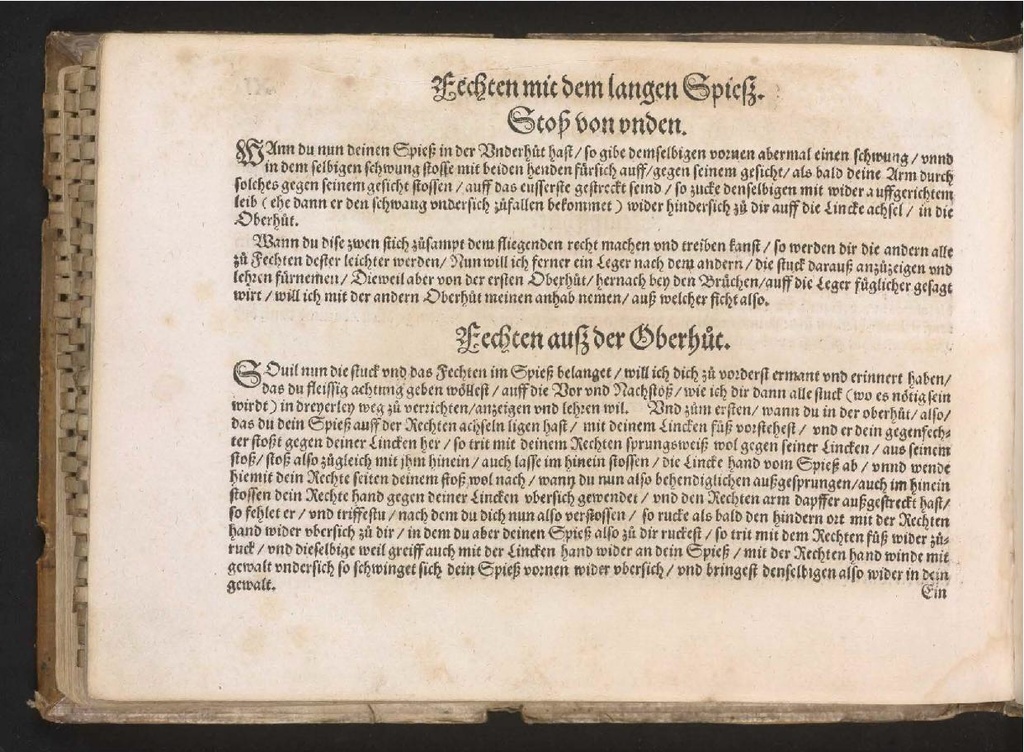 Fechten mit dem langen Spieß.
Stoß von vnden.
WAnn du nun deinen Spieß in der Vnderhůt hast / so gibe demselbigen vornen abermal einen schwung / vnnd
in dem selbigen schwung stosse mit beiden henden fürsich auff / gegen seinem gesicht / als bald deine Arm durch
solches gegen seinem gesicht stossen / auff das eusserste gestreckt seind / so zucke denselbigen mit wider auffgerichtem
leib ( ehe dann er den schwang vndersich zůfallen bekommet ) wider hindersich zů dir auff die Lincke achsel / in die
Oberhůt.
Wann du dise zwen stich zůsampt dem fliegenden recht machen vnd treiben kanst / so werden dir die andern alle
zů Fechten dester leichter werden / Nun will ich ferner ein Leger nach dem andern / die stuck darauß anzůzeigen vnd
lehren fürnemen / Dieweil aber von der ersten Oberhůt / hernach bey den Brüchen / auff die Leger füglicher gesagt
wirt / will ich mit der andern Oberhůt meinen anhab nemen / auß welcher ficht also.
Fechten auß der Oberhůt.
SOuil nun die stuck vnd das Fechten im Spieß belanget / will ich dich zů vorderst ermant vnd erinnert haben /
das du fleissig achtung geben wöllest / auff die Vor vnd Nachstöß / wie ich dir dann alle stuck (wo es nötig sein
wirdt ) in dreyerley weg zů verrichten / anzeigen vnd lehren wil. Vnd zům ersten / wann du in der oberhůt / also /
das du dein Spieß auff der Rechten achseln ligen hast / mit deinem Lincken fůß vorstehest / vnd er dein gegenfech-
ter stoßt gegen deiner Lincken her / so trit mit deinem Rechten sprungsweiß wol gegen seiner Lincken / aus seinem
stoß / stoß also zůgleich mit jhm hinein / auch lasse im hinein stossen / die Lincke hand vom Spieß ab / vnnd wende
hiemit dein Rechte seiten deinem stoß wol nach / wann du nun also behendiglichen außgesprungen / auch im hinein
stossen dein Rechte hand gegen deiner Lincken vbersich gewendet / vnd den Rechten arm dapffer außgestreckt hast /
so fehlet er / vnd triffestu / nach dem du dich nun also verstossen / so rucke als bald den hindern ort mit der Rechten
hand wider vbersich zů dir / in dem du aber deinen Spieß also zů dir ruckest / so trit mit dem Rechten fůß wider zů-
ruck / vnd dieselbige weil greiff auch mit der Lincken hand wider an dein Spieß / mit der Rechten hand winde mit
gewalt vndersich so schwinget sich dein Spieß vornen wider vbersich / vnd bringest denselbigen also wider in dein
gewalt.
Ein